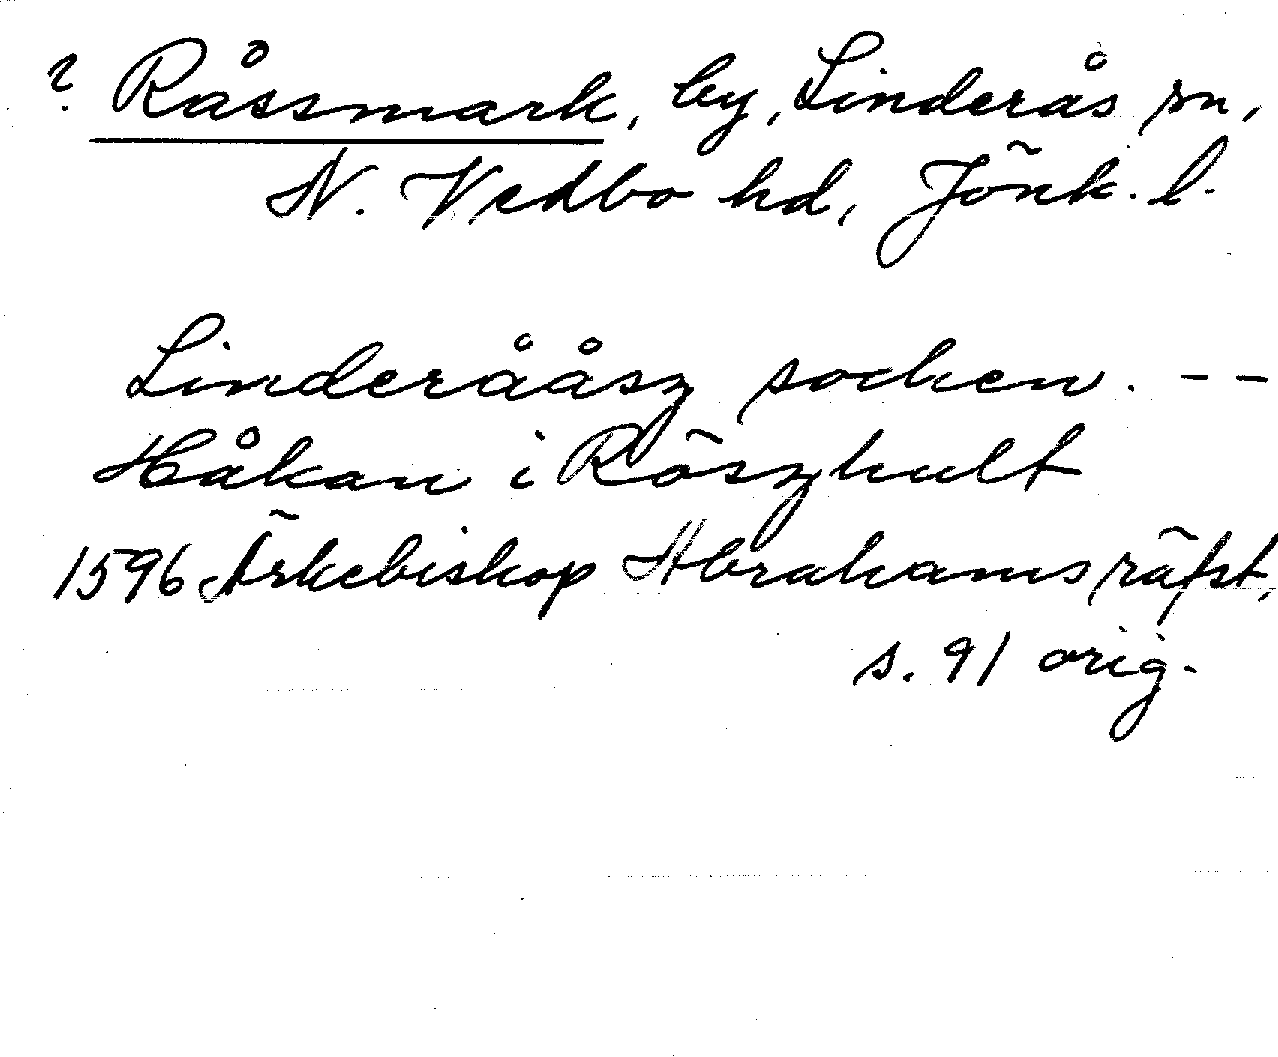 ? Råssmark, by, Linderås sn,
N. Vedbo hd, Jönk. l.
Linderååsz socken. - -
Håkan i Röszhult
1596 Ärkebiskop Abrahams räfst,
s. 91 orig.